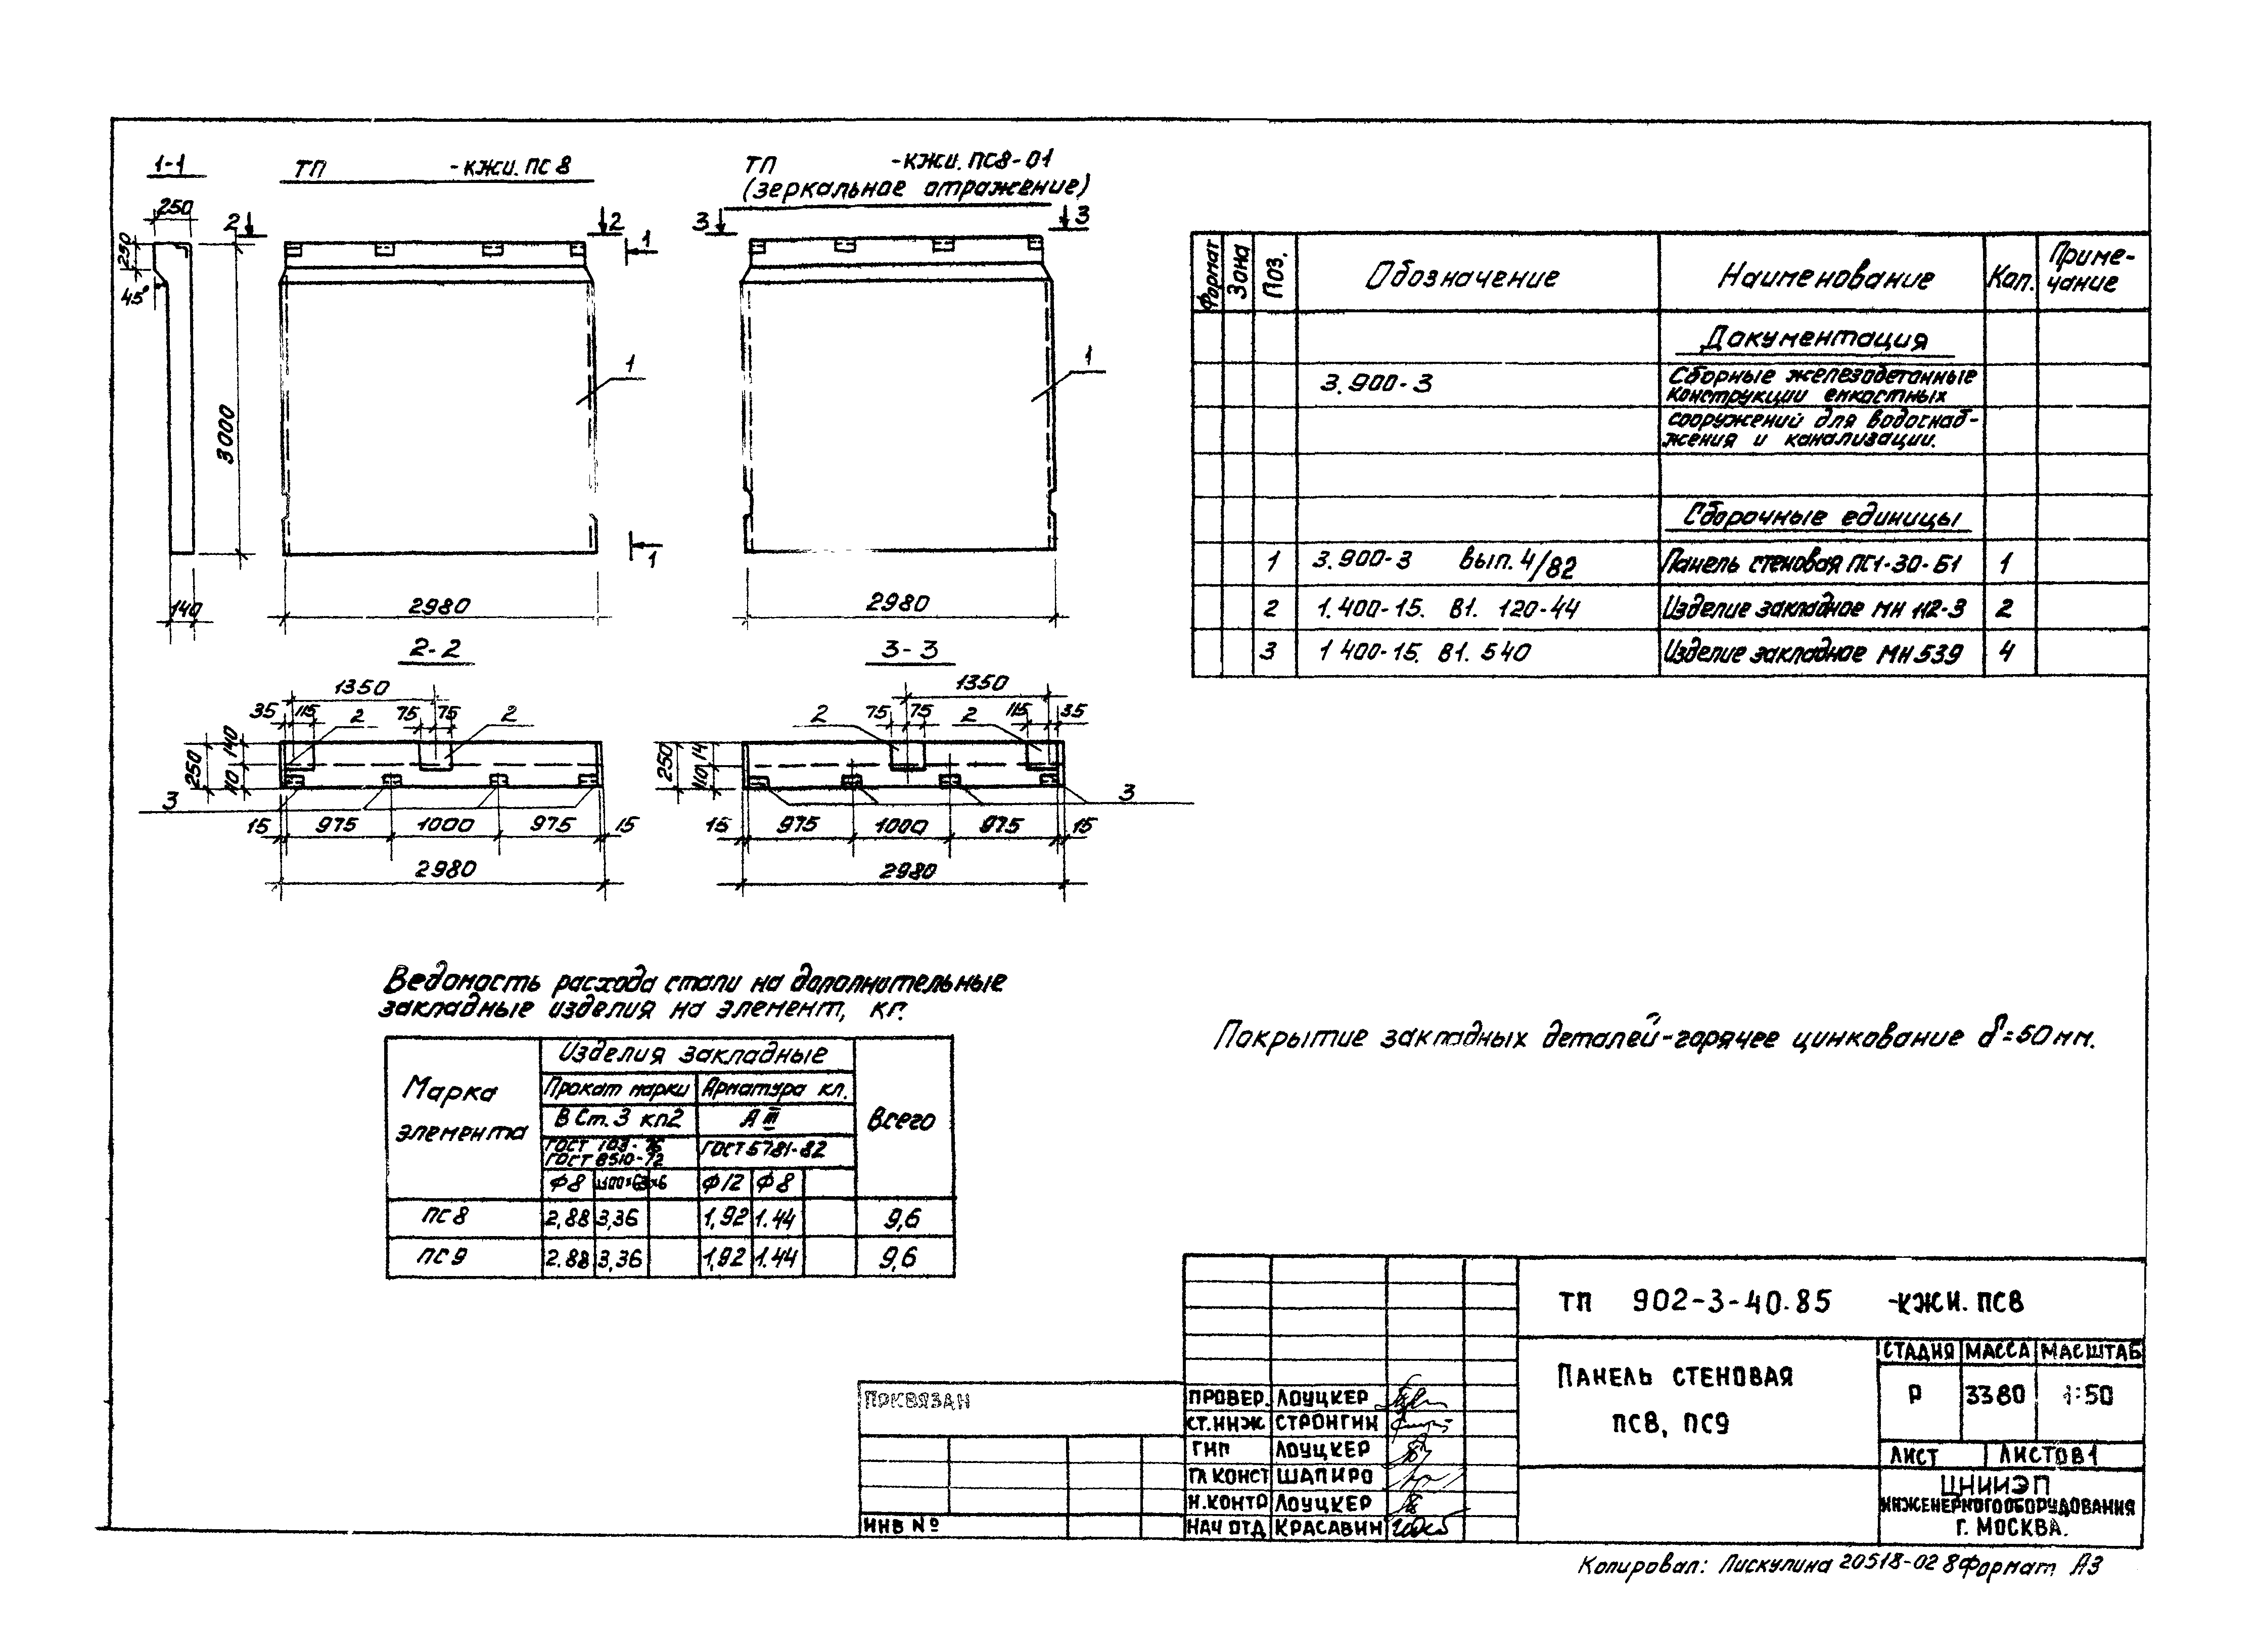 1-1
ТП -КЖИ. ПС 8
ТП -КЖИ. ПС8-01
(зеркальное отражение)
250
2
2
3
3
1
250
45°
3000
1
1
1
140
2980
2980
2-2
3-3
1350
1350
35
115
2
75
75
2
2
75
75
2
115
35
250
140
110
250
14
110
3
3
15
975
1000
975
15
15
975
1000
975
15
2980
2980
Формат
Зона
Поз.
Обозначение
Наименование
Кол.
Приме-
чание
Документация
3.900-3
Сборные железобетонные
конструкции емкостных
сооружений для водоснаб-
жения и канализации.
Сборочные единицы
1 3.900-3 вып. 4/82 Панель стеновая ПС1-30-Б1 1
2 1.400-15. В1. 120-44 Изделие закладное МН 112-3 2
3 1 400-15. В1. 540 Изделие закладное МН 539 4
Ведомость расхода стали на дополнительные
закладные изделия на элемент, кг.
Марка
элемента
Изделия закладные
Всего
Прокат марки
Арматура кл.
В Ст. 3 кп2
А III
ГОСТ 103-76
ГОСТ 8510-72
ГОСТ 5781-82
Ф8
L100×63×6
Ф12
Ф8
ПС 8 2,88 3,36 1,92 1.44 9,6
ПС 9 2.88 3,36 1,92 1.44 9,6
Покрытие закладных деталей-горячее цинкование δ=50мм.
ТП 902-3-40.85 -КЖИ. ПС8
Панель стеновая
ПС8, ПС9
СТАДИЯ МАССА МАСШТАБ
Р 3380 1:50
ЛИСТ ЛИСТОВ 1
ЦНИИЭП
ИНЖЕНЕРНОГО ОБОРУДОВАНИЯ
Г. МОСКВА.
ПРИВЯЗАН
ИНВ №
ПРОВЕР. ЛОУЦКЕР
СТ.ИНЖ СТРОНГИН
ГИП ЛОУЦКЕР
ГЛ КОНСТ ШАПИРО
Н.КОНТР ЛОУЦКЕР
НАЧ ОТД КРАСАВИН
Копировал: Пискулина 20518-02 8 Формат А3